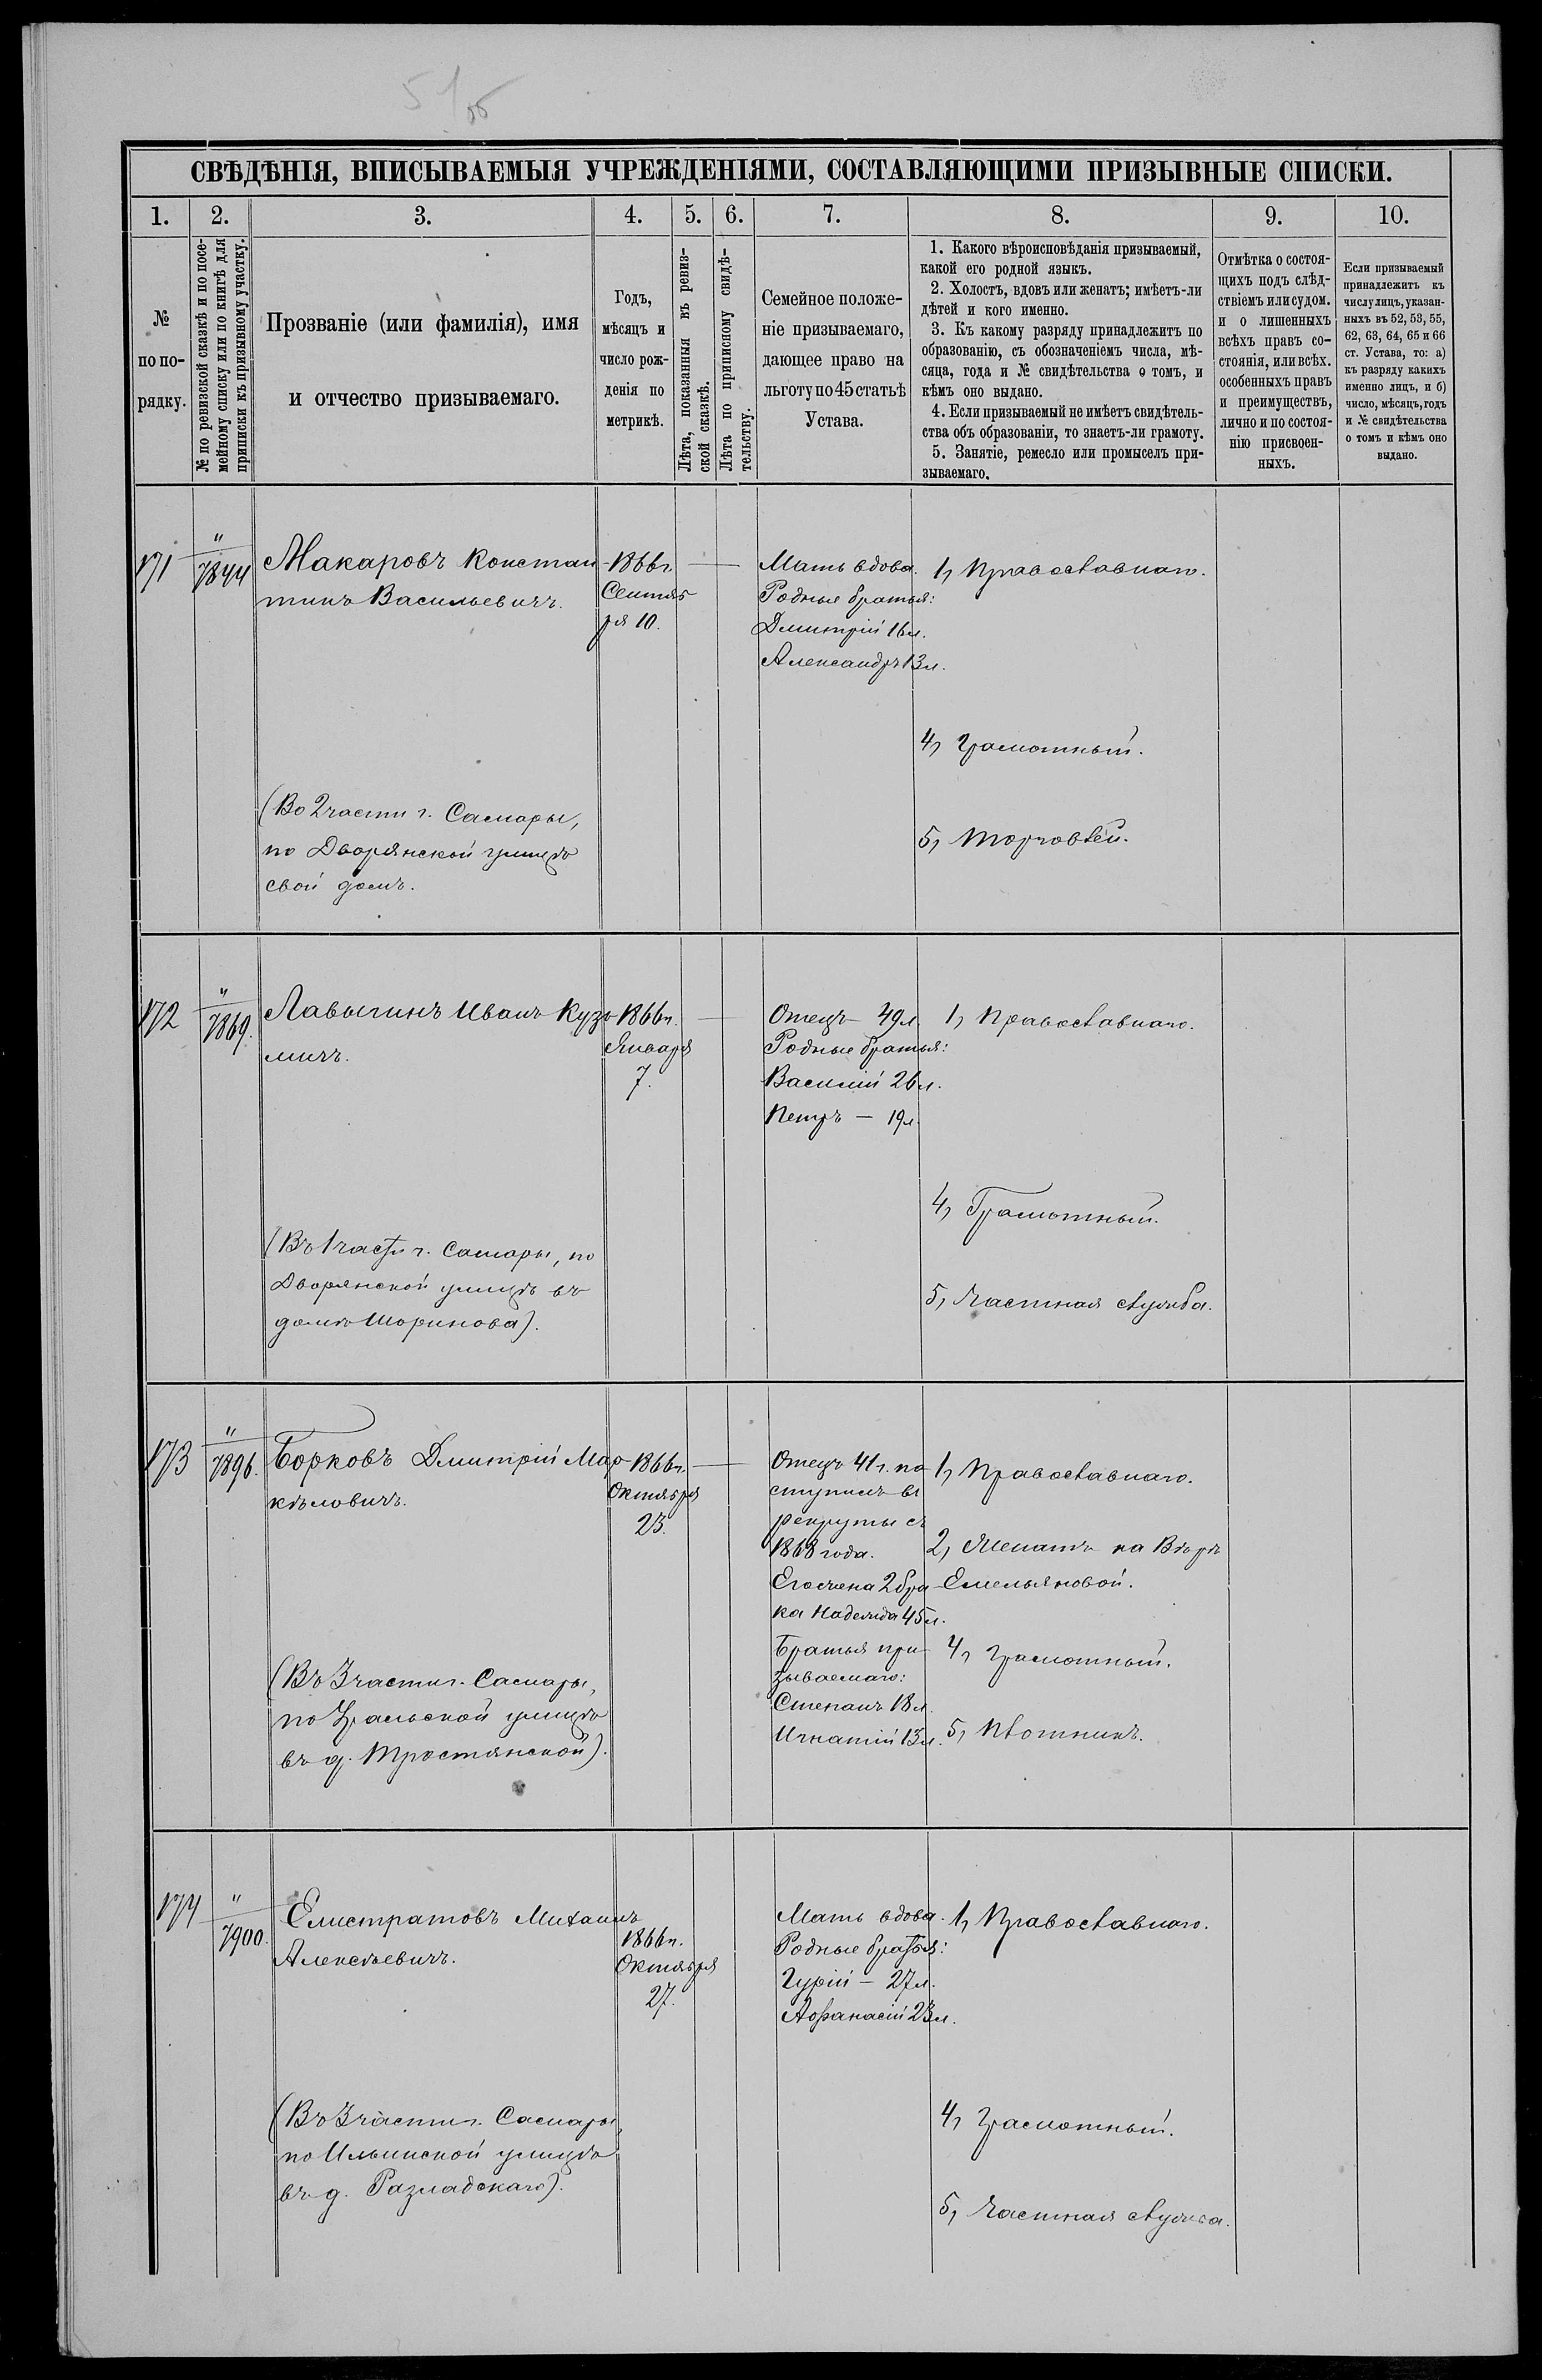 СВѢДѢНІЯ, ВПИСЫВАЕМЫЯ УЧРЕЖДЕНІЯМИ, СОСТАВЛЯЮЩИМИ ПРИЗЫВНЫЕ СПИСКИ.
1.
2.
3.
4.
5.
6.
7.
8.
9.
10.
№
по по-
рядку.
№ по ревизской сказкѣ и по посе-
мейному списку или по книгѣ для
приписки къ призывному участку.
Прозваніе (или фамилія), имя
и отчество призываемаго.
Годъ,
мѣсяцъ и
число рож-
денія по
метрикѣ.
Лѣта, показанныя въ ревиз-
ской сказкѣ.
Лѣта по приписному свидѣ-
тельству.
Семейное положе-
ніе призываемаго,
дающее право на
льготу по 45 статьѣ
Устава.
1. Какого вѣроисповѣданія призываемый,
какой его родной языкъ.
2. Холостъ, вдовъ или женатъ; имѣетъ-ли
дѣтей и кого именно.
3. Къ какому разряду принадлежитъ по
образованію, съ обозначеніемъ числа, мѣ-
сяца, года и № свидѣтельства о томъ, и
кѣмъ оно выдано.
4. Если призываемый не имѣетъ свидѣтель-
ства объ образованіи, то знаетъ-ли грамоту.
5. Занятіе, ремесло или промыселъ при-
зываемаго.
Отмѣтка о состоя-
щихъ подъ слѣд-
ствіемъ или судом.
и о лишенныхъ
всѣхъ правъ со-
стоянія, или всѣх.
особенныхъ правъ
и преимуществъ,
лично и по состоя-
нію присвоен-
ныхъ.
Если призываемый
принадлежитъ къ
числу лицъ, указан-
ныхъ въ 52, 53, 55,
62, 63, 64, 65 и 66
ст. Устава, то: а)
къ разряду какихъ
именно лицъ, и б)
число, мѣсяцъ, годъ
и № свидѣтельства
о томъ и кѣмъ оно
выдано.
171
"
7844
Макаровъ Констан
тинъ Васильевичъ.
(Во 2 части г. Самары,
по Дворянской улицѣ
свой домъ.
1866 г.
Сентяб
ря 10.
Мать вдова.
Родные братья:
Дмитрій 16 л.
Александръ 13 л.
1, Православнаго.
4, Грамотный.
5, Торговлей.
172
"
7869.
Лавыгинъ Иванъ Кузь
мичъ.
(Въ 1 части г. Самары, по
Дворянской улицѣ въ
домѣ Шоринова).
1866 г.
Января
7.
Отецъ – 49 л.
Родные братья:
Василій 26 л.
Петръ – 19 л.
1, Православнаго.
4, Грамотный.
5, Частная служба.
173
"
7896.
Борковъ Дмитрій Мар
кѣловичъ.
(Въ 3 части г. Самары,
по Уральской улицѣ
въ д. Тростянской).
1866 г.
Октября
23.
Отецъ 41 г. по
ступилъ въ
рекруты съ
1868 года.
Его жена 2 бра
ка Надежда 45 л.
Братья при
зываемаго:
Степанъ 18 л.
Игнатій 13 л.
1, Православнаго.
2, Женатъ на Вѣрѣ
Емельяновой.
4, Грамотный.
5, Плотникъ.
174
"
7900.
Елистратовъ Михаилъ
Алексѣевичъ.
(Въ 3 части г. Самары,
по Ильинской улицѣ
въ д. Разладскаго).
1866 г.
Октября
27.
Мать вдова.
Родные братья:
Гурій – 27 л.
Афанасій 23 л.
1, Православнаго.
4, Грамотный.
5, Частная служба.